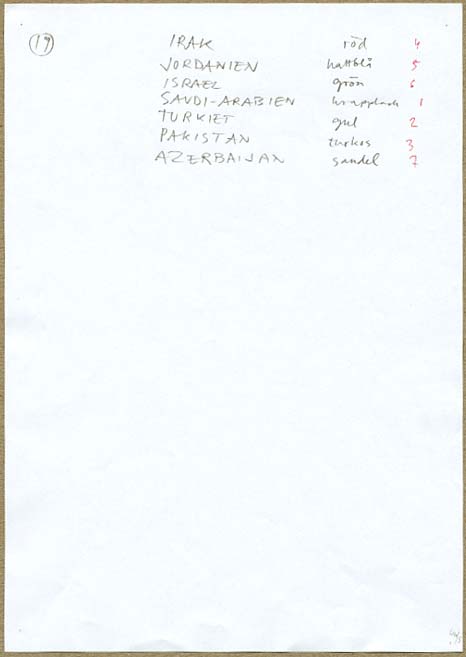 19
IRAK röd 4
JORDANIEN nattblå 5
ISRAEL grön 6
SAUDI-ARABIEN krapplack 1
TURKIET gul 2
PAKISTAN turkos 3
AZERBAIJAN sandel 7